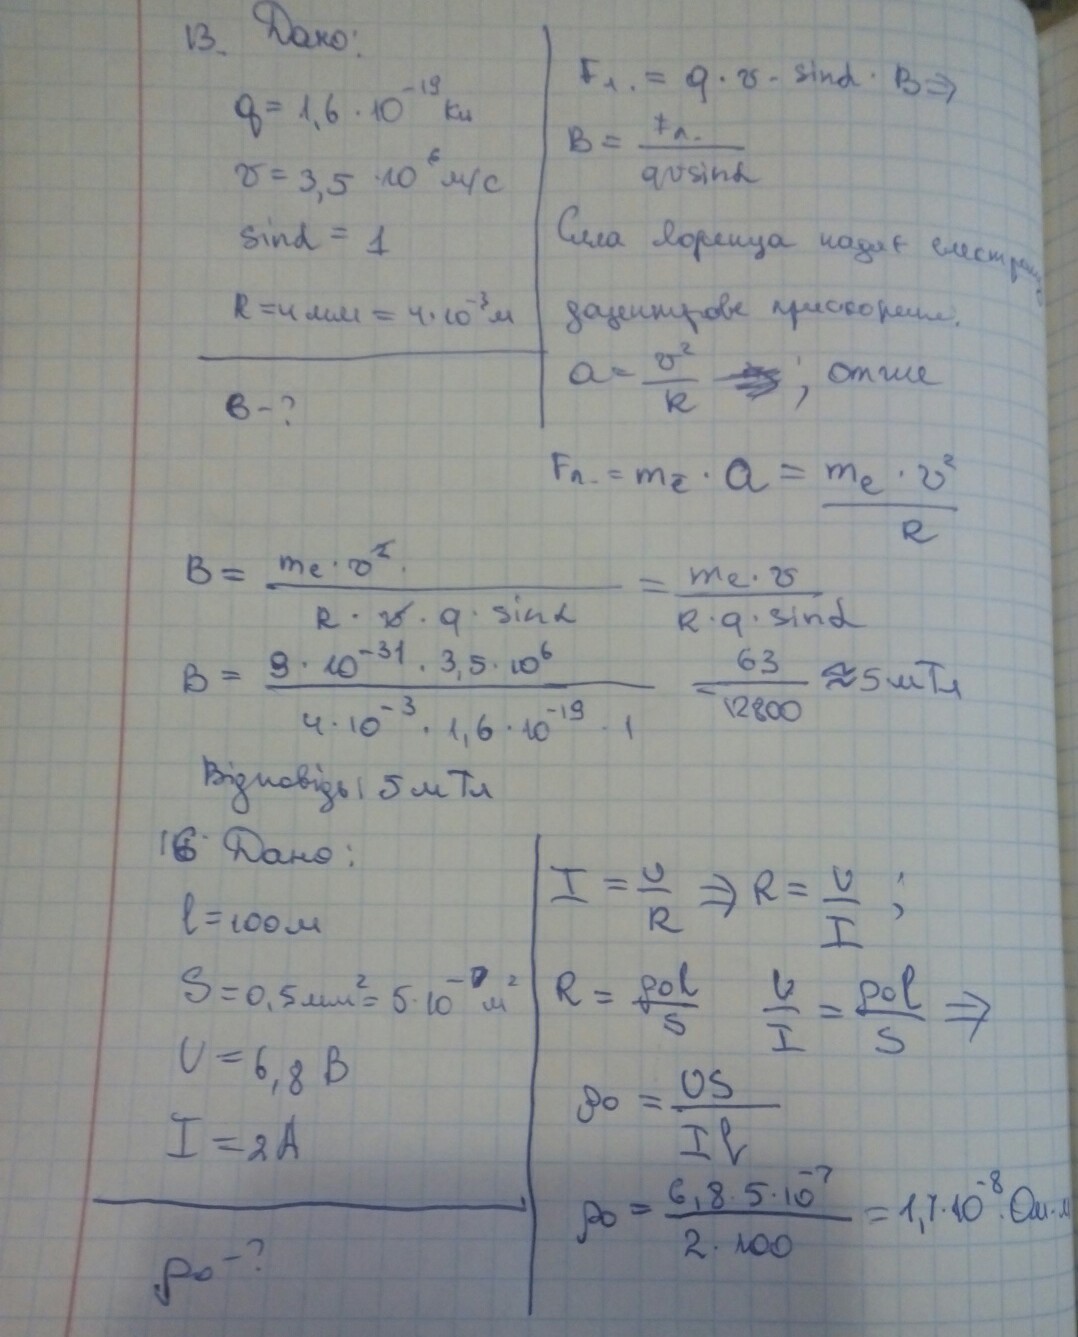 13. Дано:
q = 1,6 · 10⁻¹⁹ Кл
v = 3,5 · 10⁶ м/с
sinα = 1
R = 4 мм = 4 · 10⁻³ м
B - ?
Fл. = q · v · sinα · B ⇒
B = Fл. / qvsinα
Сила Лоренца надає
доцентрове прискорення.
a = v² / R ; отже
Fл. = mₑ · a = mₑ · v² / R
B = mₑ · v² / R · v · q · sinα = mₑ · v / R · q · sinα
B = 9 · 10⁻³¹ · 3,5 · 10⁶ / 4 · 10⁻³ · 1,6 · 10⁻¹⁹ · 1 = 63 / 12800 ≈ 5 мТл
Відповідь: 5 мТл
16. Дано:
l = 100 м
S = 0,5 мм² = 5 · 10⁻⁷ м²
U = 6,8 В
I = 2 А
ρ₀ - ?
I = U / R ⇒ R = U / I ;
R = ρ₀l / S U / I = ρ₀l / S ⇒
ρ₀ = US / Il
ρ₀ = 6,8 · 5 · 10⁻⁷ / 2 · 100 = 1,7 · 10⁻⁸ Ом · м